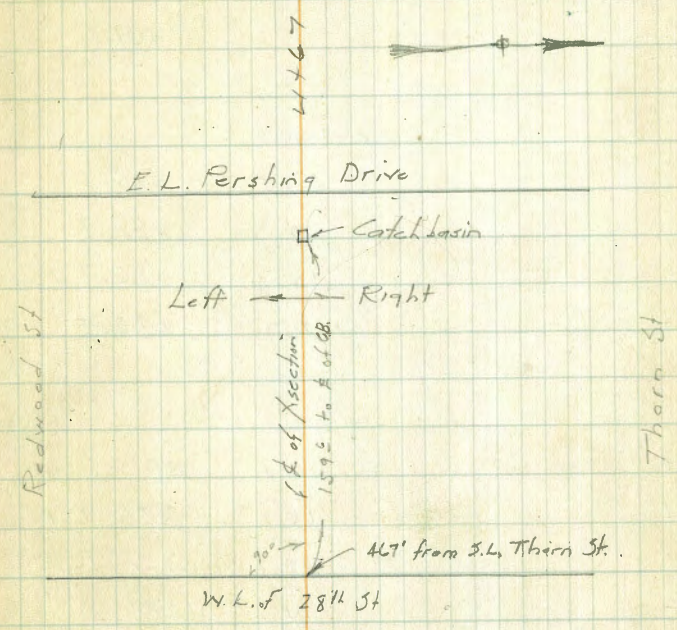 4+67
E. L. Pershing Drive
Catchbasin
Left
Right
Redwood St
Thorn St
℄ of Xsection
159⁶ to ℄ of CB.
90°
467' from S.L. Thorn St.
W. L. of 28th St